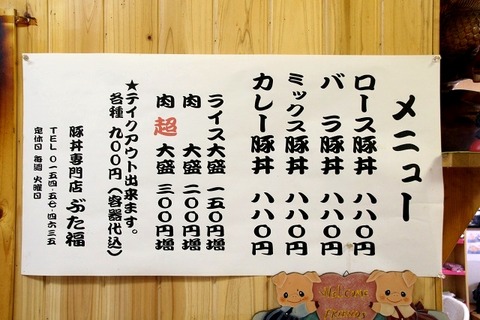 メニュー
ロース豚丼 八八〇円
バラ豚丼 八八〇円
ミックス豚丼 八八〇円
カレー豚丼 八八〇円
ライス大盛 一五〇円増
肉 大盛 二〇〇円増
肉 超 大盛 三〇〇円増
★テイクアウト出来ます。
各種 九〇〇円(容器代込)
豚丼専門店 ぶた福
TEL 0154-57-4635
定休日 毎週 火曜日
Welcome